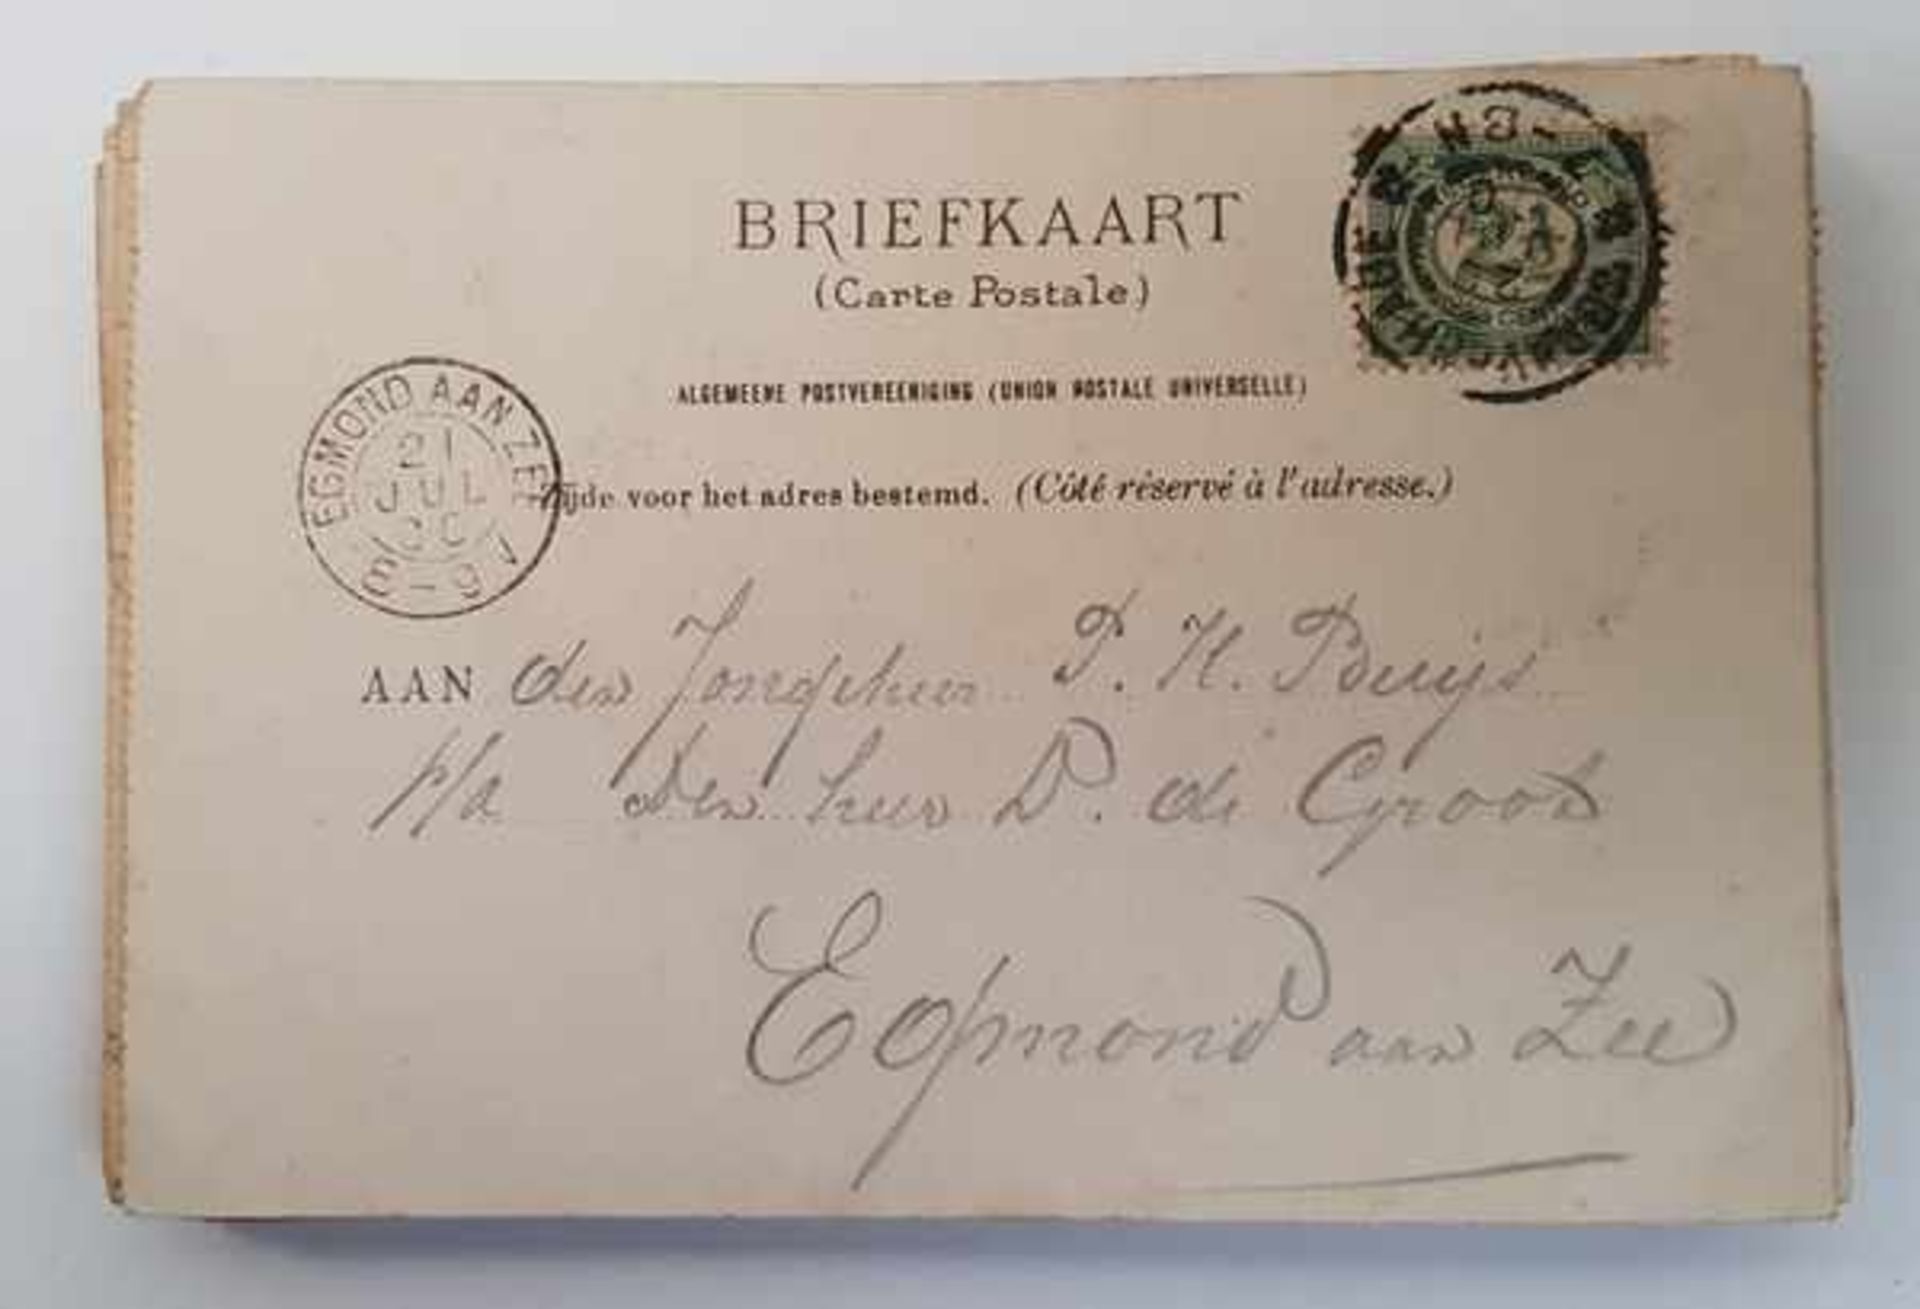 BRIEFKAART
(Carte Postale)
ALGEMEENE POSTVEREENIGING (UNION POSTALE UNIVERSELLE)
EGMOND AAN ZEE
21
JUL
8-9V
Zijde voor het adres bestemd. (Côté réservé à l'adresse.)
AAN den Jongeheer P. H. Buijs
p/a den heer D. de Groot
Egmond aan Zee